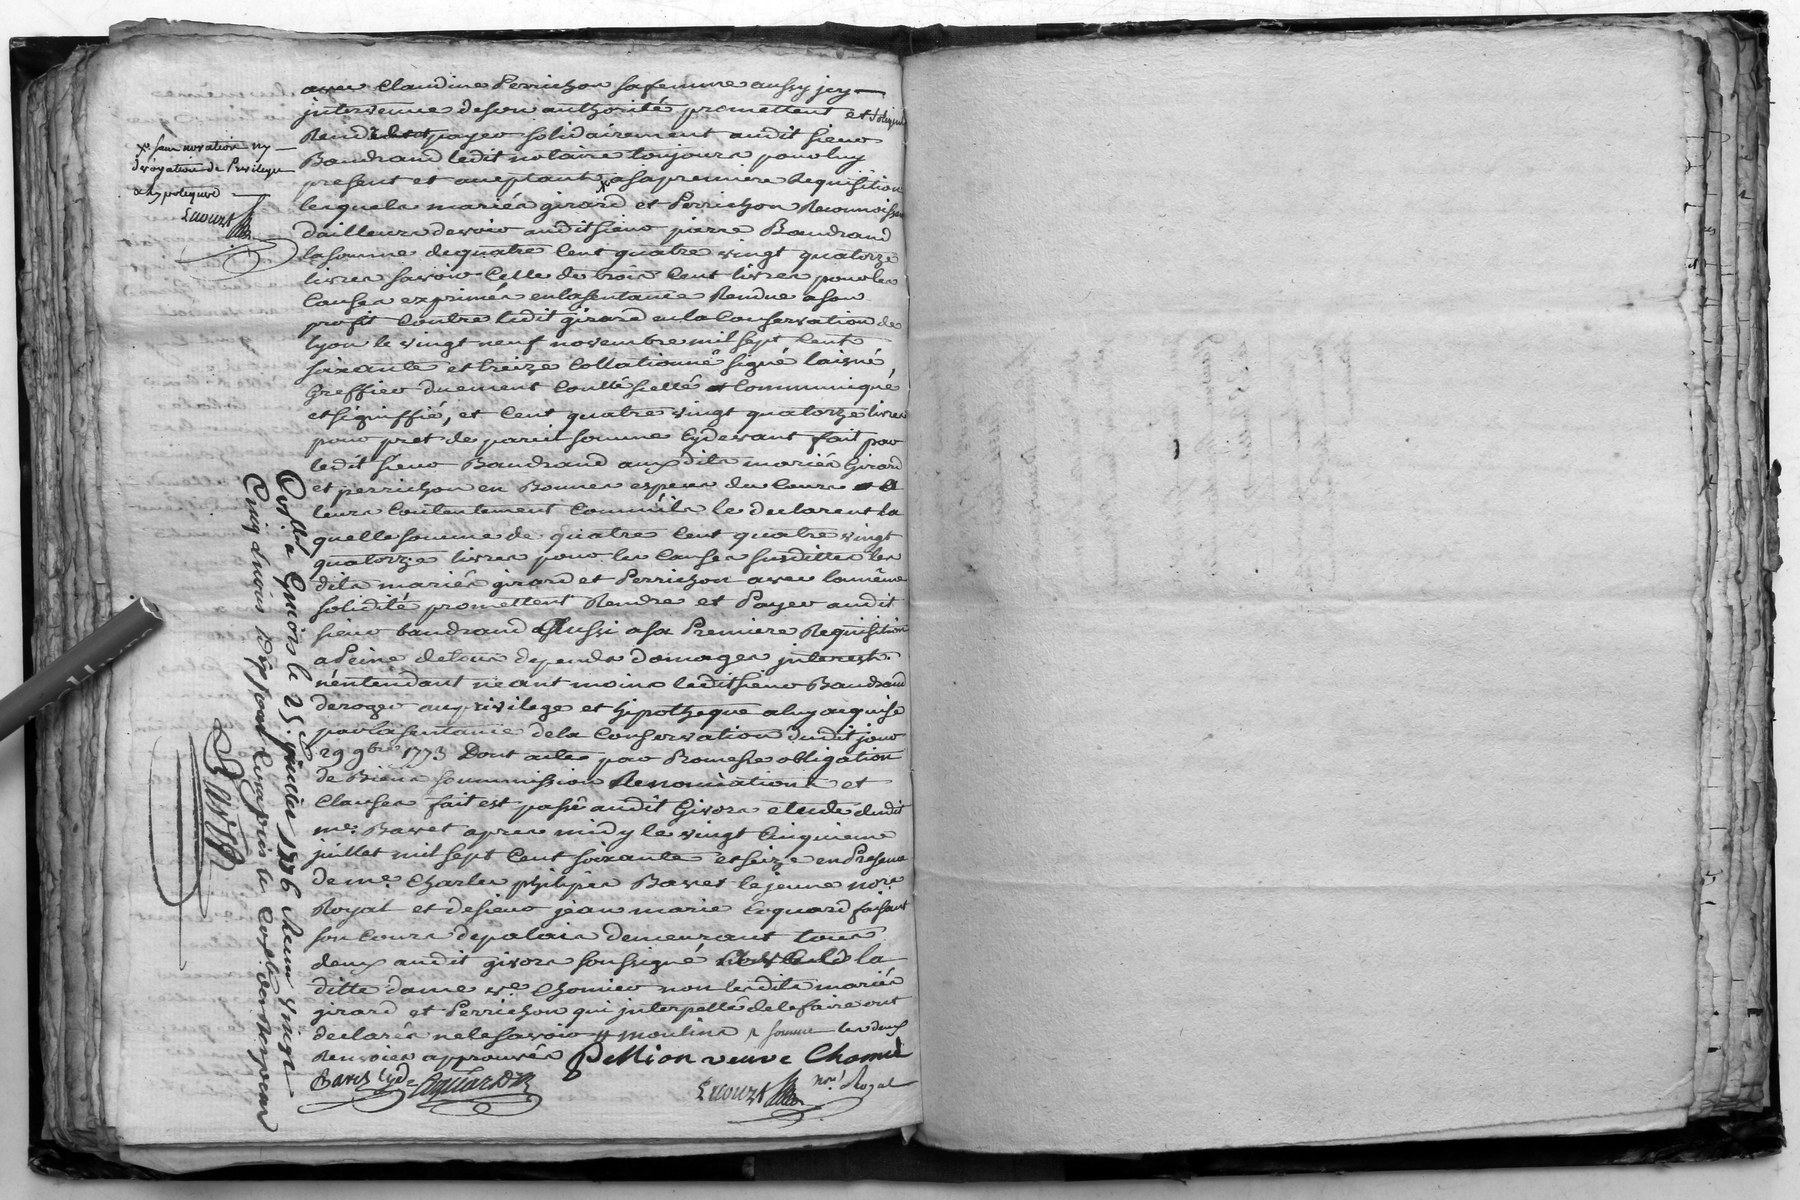 avec Claudine Perrichon sa femme aussy icy
intervenue de son authorité promettent et s'obligent
Rendre et payer solidairement audit sieur
Baudrand ledit notaire toujours pour luy
present et aceptant x a sa premiere Requisition
lesquels mariés girard et Perrichon Reconnoissent
dailleurs devoir audit sieur pierre Baudrand
la somme de quatre Cent quatre vingt quatorze
livres savoir Celle de trois Cent livres pour les
Causes exprimés en la sentance Rendue a son
profit Contre ledit girard en la Conservation de
lyon le vingt neuf novembre mil sept Cent
soixante et treize Collationné signé laisné
Greffier duement Contlé siellé et Communiqué
et signiffié, et Cent quatre vingt quatorze livres
pour pret de pareil somme Cydevant fait par
ledit sieur Baudrand auxdits mariés Girard
et perrichon en Bonnes especes du Cours a
leurs Contentement Comm'ils le declarent la
quelle somme de quatre Cent quatre vingt
quatorze livres pour les Causes susdittes les
dits mariés girard et Perrichon avec la même
solidité promettent Rendre et Payer audit
sieur baudrand Aussi a sa Premiere Requisition
a Peine de tous depends domages interest
n'entendant neant moins ledit sieur Baudrand
deroger au privilege et hipotheque a luy acquise
par la sentance de la Conservation dudit jour
29 9bre 1773 Dont acte par Promesse obligation
de Biens soummission Renonciations et
Clauses fait est passé audit Givors etude dudit
me. Baret apres midy le vingt Cinquieme
juillet mil sept Cent soixante et seize en Presence
de me. Charles philipes Baret le jeune nore
Royal et de sieur jean marie Coquard faisant
son Cours de palais demeurant tous
deux audit givors soussigné la
ditte dame ve. Chomier non lesdits mariés
girard et Perrichon qui interpellé de le faire ont
declarés ne le savoir # moulins # somme les deux
Renvoies approuvés Pellion veuve Chomel
Baret Coquard
not Royal
x sans novation ny
derogation de Privilege
et hypotequere
Collé a Givors le 25 juillet 1776 Reçu vingt
Cinq